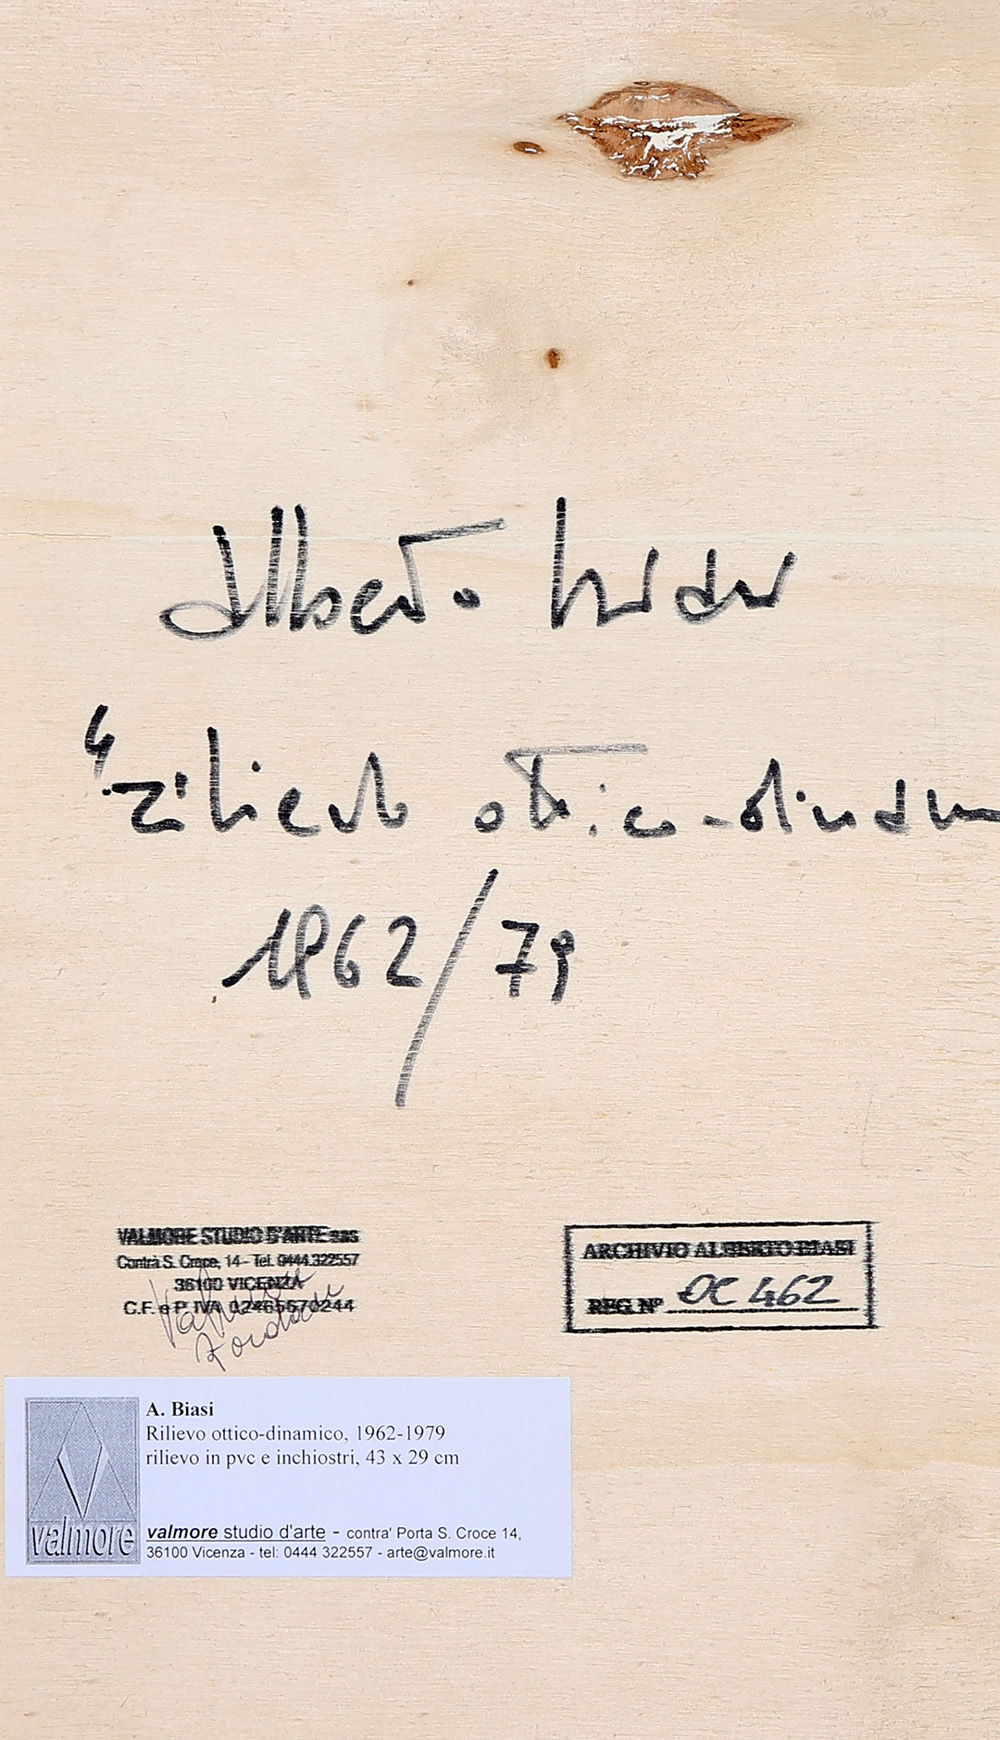 alberto biasi
"rilievo ottico-dinam
1962/79
VALMORE STUDIO D'ARTE sas
Contrà S. Croce, 14 - Tel. 0444.322557
36100 VICENZA
C.F. e P. IVA 02465670244
ARCHIVIO ALBERTO BIASI
REG. N° OC 462
A. Biasi
Rilievo ottico-dinamico, 1962-1979
rilievo in pvc e inchiostri, 43 x 29 cm
valmore
valmore studio d'arte - contra' Porta S. Croce 14,
36100 Vicenza - tel: 0444 322557 - arte@valmore.it